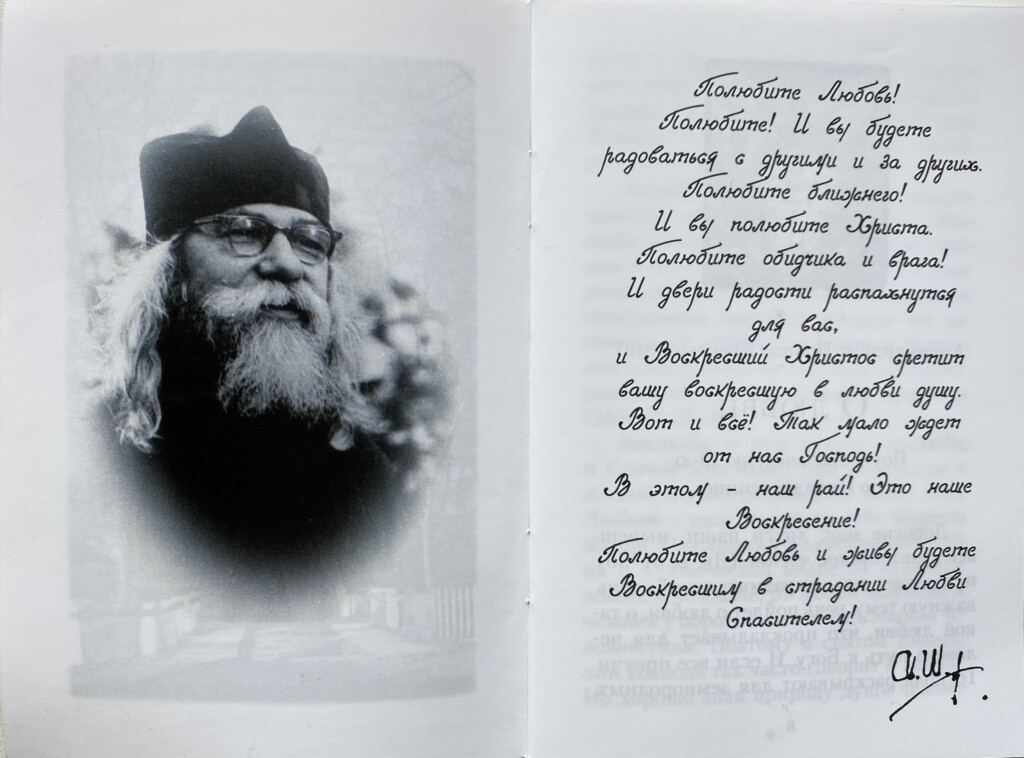 Полюбите Любовь!
Полюбите! И вы будете
радоваться с другими и за других.
Полюбите ближнего!
И вы полюбите Христа.
Полюбите обидчика и врага!
И двери радости распахнутся
для вас,
и Воскресший Христос сретит
вашу воскресшую в любви душу.
Вот и всё! Так мало ждет
от нас Господь!
В этом - наш рай! Это наше
Воскресение!
Полюбите Любовь и живы будете
Воскресшим в страдании Любви
Спасителем!